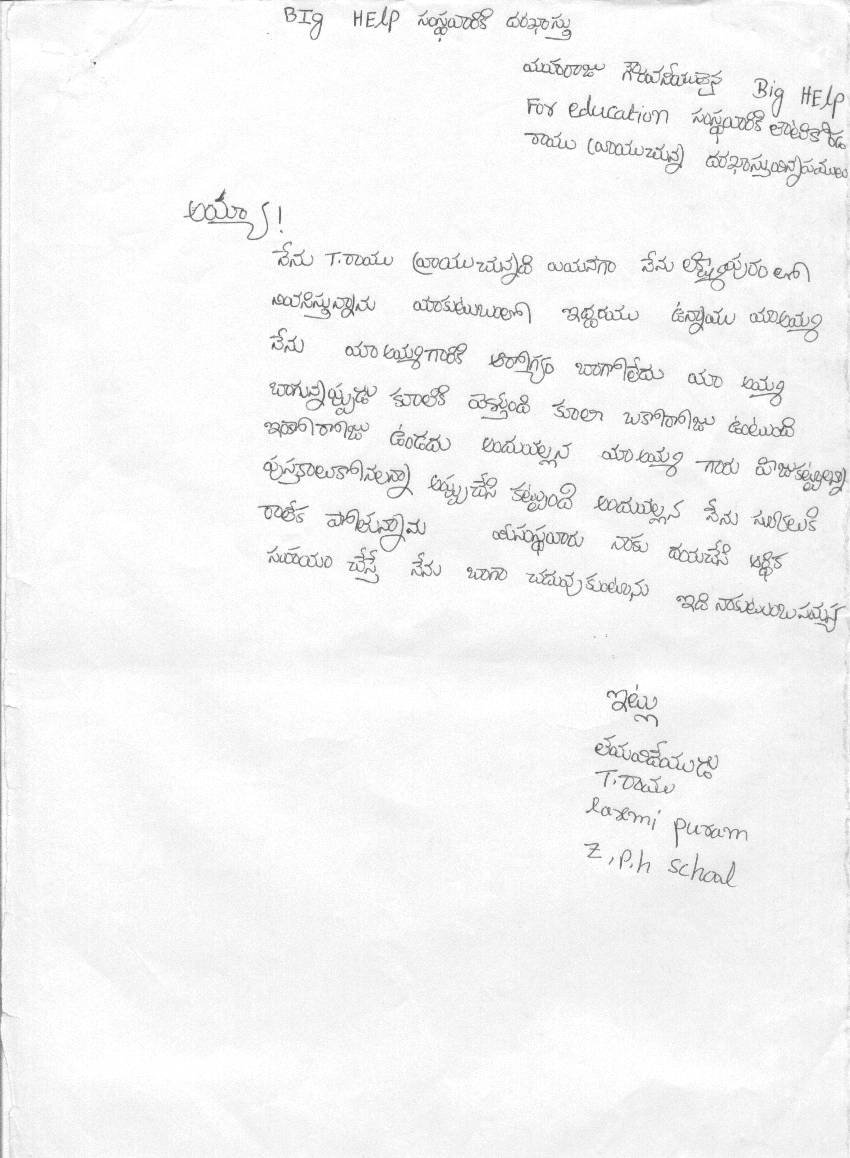 BIg HElp సంస్థవారికి దరఖాస్తు
మహారాజు గౌరవనీయులైన Big HElp
For education సంస్థవారికి
రాము వ్రాయుచున్న దరఖాస్తు
అయ్యా!
నేను T.రాము వ్రాయుచున్నది ఏమనగా నేను లక్ష్మీపురం లో
నివసిస్తున్నాను మాకుటుబంలో ఇద్దరము ఉన్నాము మాఅమ్మ
నేను మా అమ్మగారికి ఆరోగ్యం బాగోలేదు మా అమ్మ
బాగున్నప్పుడు కూలికి వెళ్తుంది కూలా ఒకోరోజు ఉంటుంది
ఇంకోరోజు ఉండదు అందువల్లన మాఅమ్మ గారు ఫిజుకట్టాలన్నా
పుస్తకాలుకోనాలన్నా అప్పుచేసి కట్టుంది అందువల్లన నేను స్కులుకి
రాలేక పోతున్నాను మీసంస్థవారు నాకు దయచేసి ఆర్థిక
సహయం చేస్తే నేను బాగా చదువుకుంటాను ఇది నాకుటుంబసమస్య
ఇట్లు
తమవిదేయుడు
T.రాము
laxmi puram
Z.p.h school